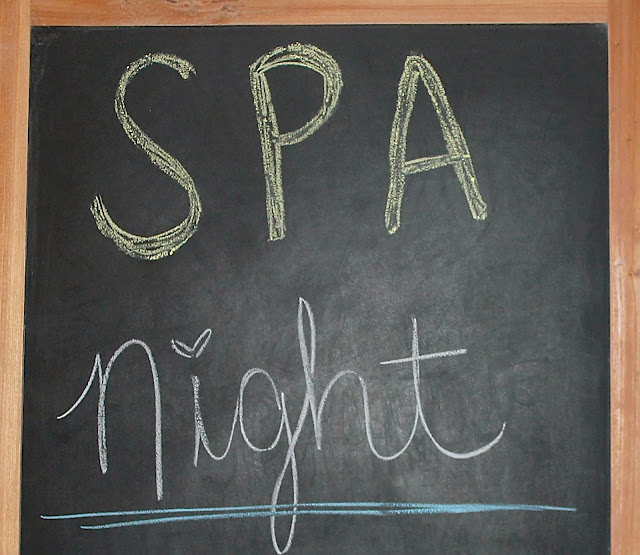 SPA
Night